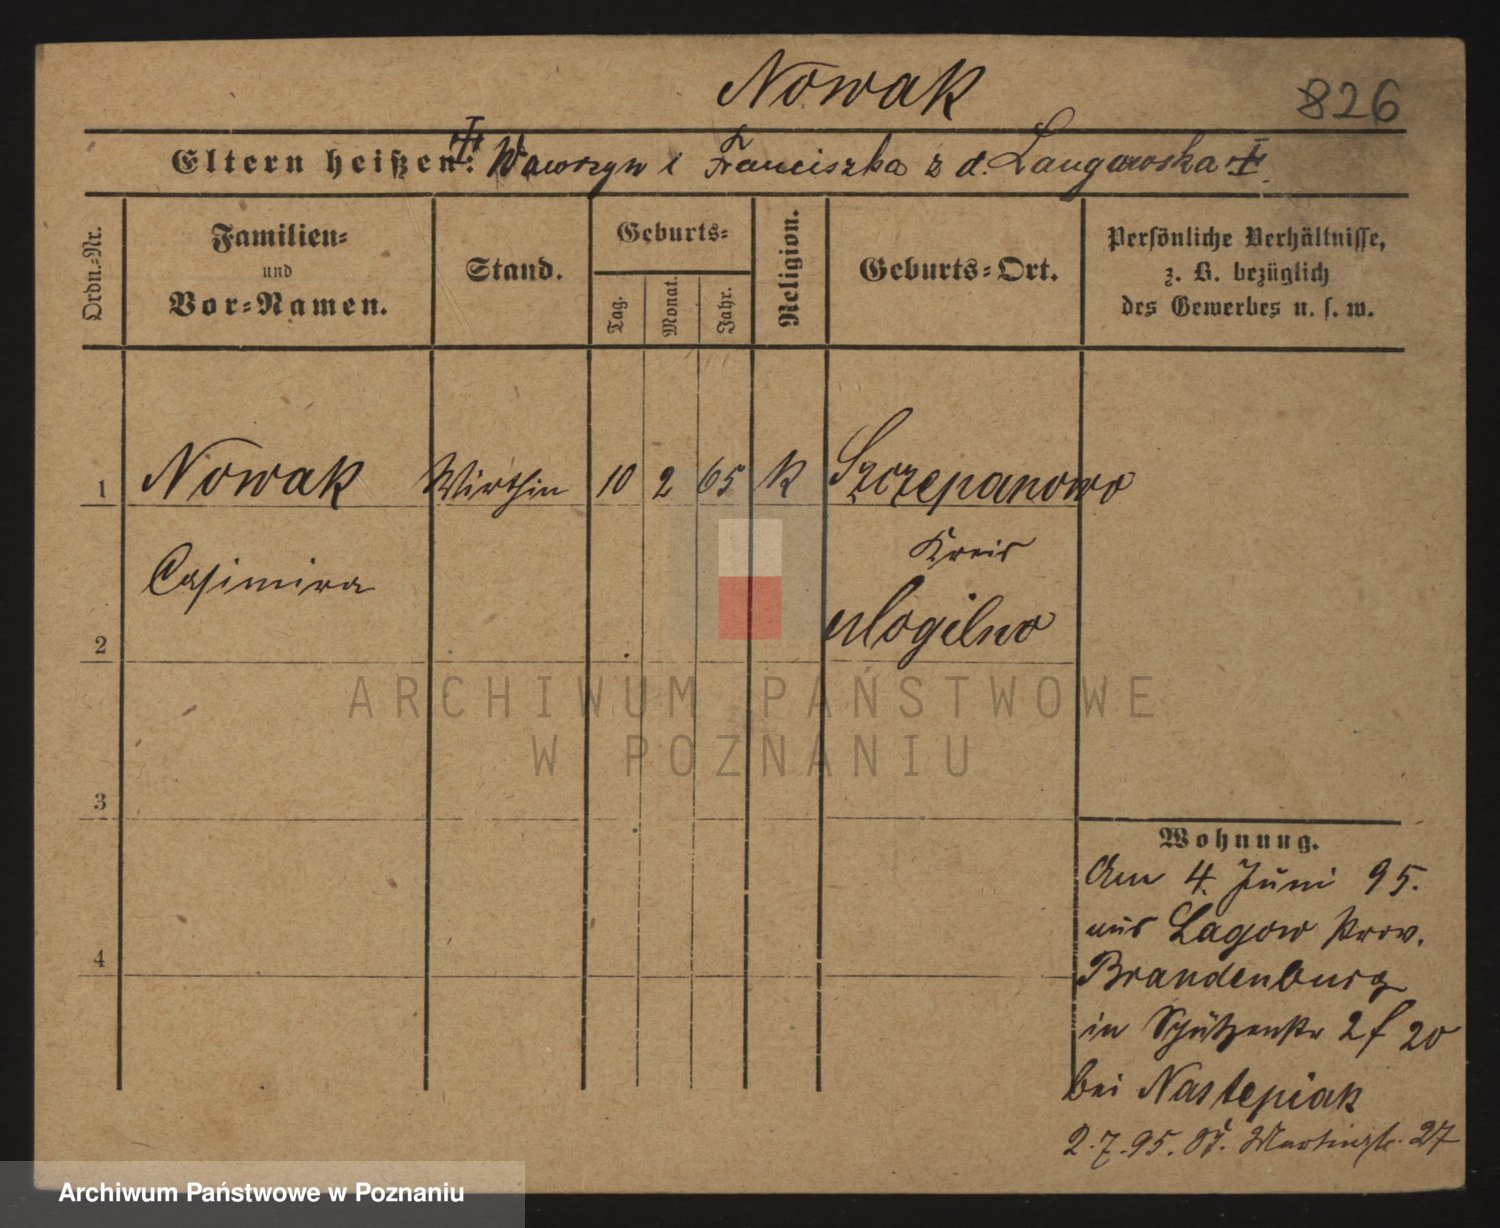 Nowak
826
Eltern heißen: Wawrzyn i Franciszka z d. Langowska
Ordn.-Nr.
Familien-
und
Vor-Namen.
Stand.
Geburts-
Tag.
Monat.
Jahr.
Religion.
Geburts-Ort.
Persönliche Verhältnisse,
z. B. bezüglich
des Gewerbes u. s. w.
1 Nowak Wirthin 10 2 65 K Szczepanowo
Kreis
Casimira
Mogilno
2
3
4
Wohnung.
Am 4. Juni 95.
aus Lagow Prov.
Brandenburg
in Schützenstr 20
bei Nastepiak
2.7.95. St. Martinstr. 27
ARCHIWUM PAŃSTWOWE
W POZNANIU
Archiwum Państwowe w Poznaniu